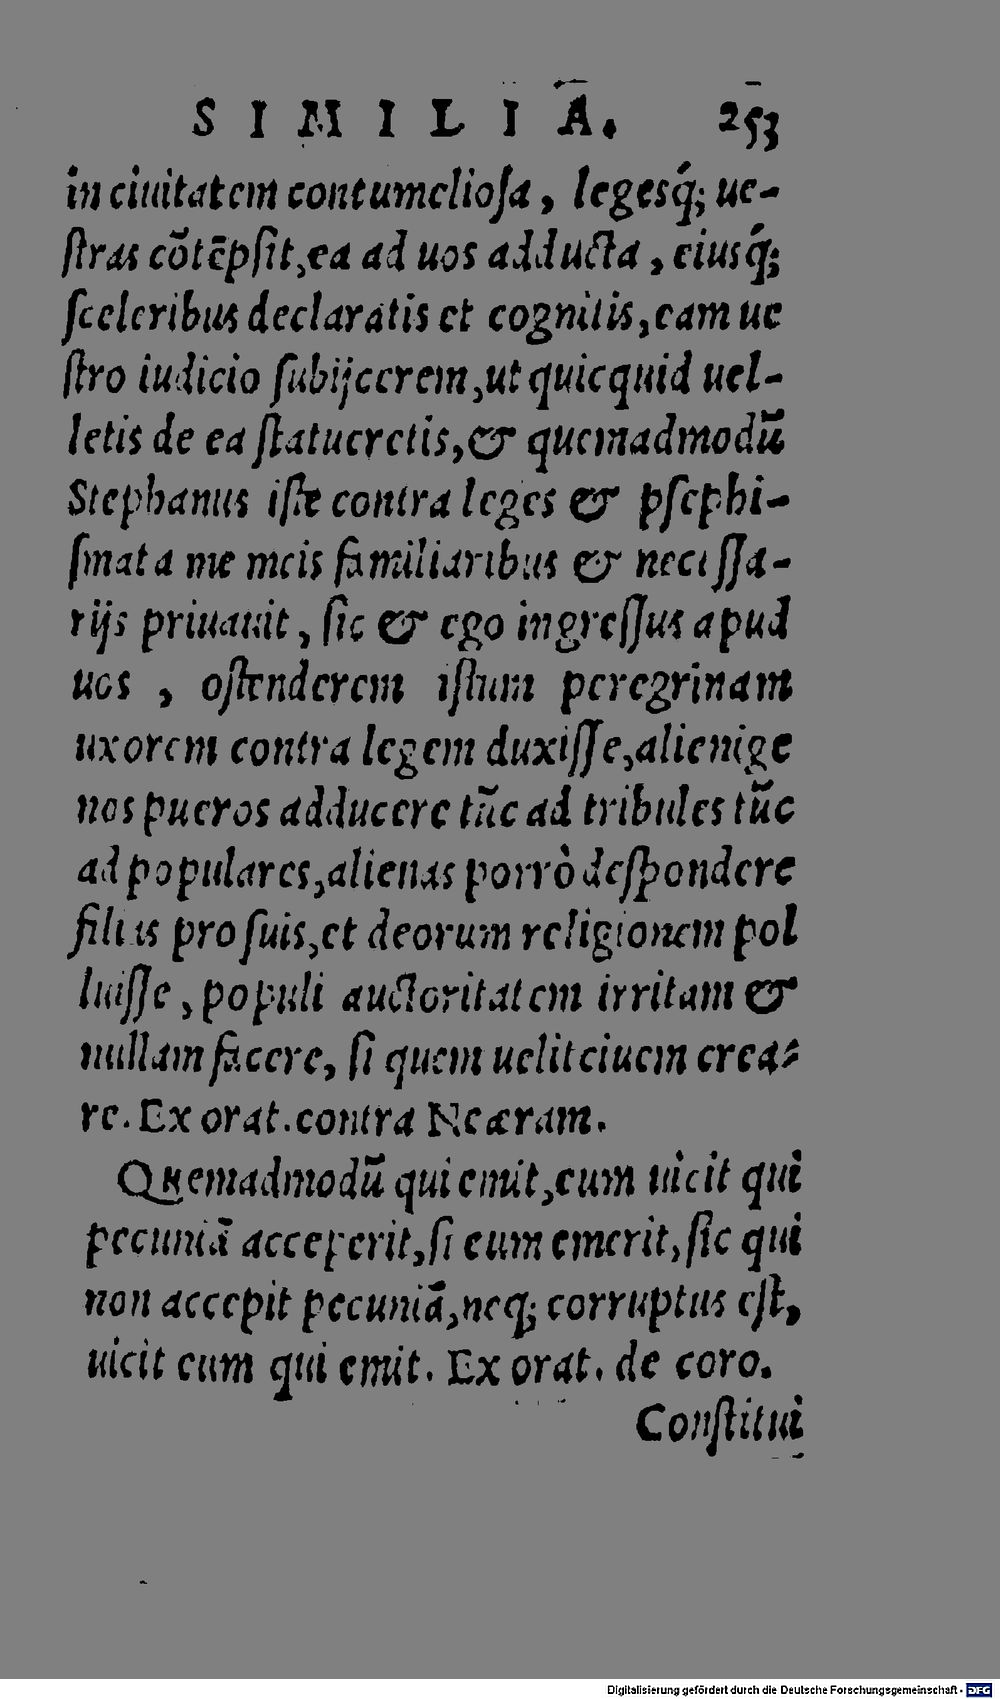 SIMILIA. 253
in ciuitatem contumeliosa, legesq́; ue-
stras cõtẽpsit, ea ad uos adducta, eiusq́;
sceleribus declaratis et cognitis, eam ue
stro iudicio subijcerem, ut quicquid uel-
letis de ea statueretis, & quemadmodũ
Stephanus iste contra leges & psephi-
smata me meis familiaribus & necessa-
rijs priuauit, sic & ego ingressus apud
uos, ostenderem istum peregrinam
uxorem contra legem duxisse, alienige
nos pueros adducere tũc ad tribules tũc
ad populares, alienas porrò despondere
filias pro suis, et deorum religionem pol
luisse, populi auctoritatem irritam &
nullam facere, si quem uelit ciuem crea-
re. Ex orat. contra Neæram.
Quemadmodũ qui emit, cum uicit qui
pecuniã acceperit, si eum emerit, sic qui
non accepit pecuniã, neq; corruptus est,
uicit eum qui emit. Ex orat. de coro.
Constitui
Digitalisierung gefördert durch die Deutsche Forschungsgemeinschaft - DFG